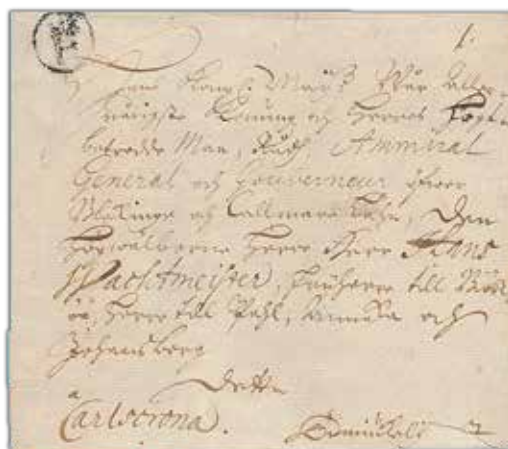 1.
Hans Kongl. May:tz Wår Aller-
nådigste Konung och Herres Högt-
betrodde Man, Rådh, Ammiral
General och Gouverneur öfwer
och Callmare Lähn, Den
Högwälborne Herre Herr Hans
Wachtmeister, till
Herre till och
Johansberg
Dette
a
Carlscrona.